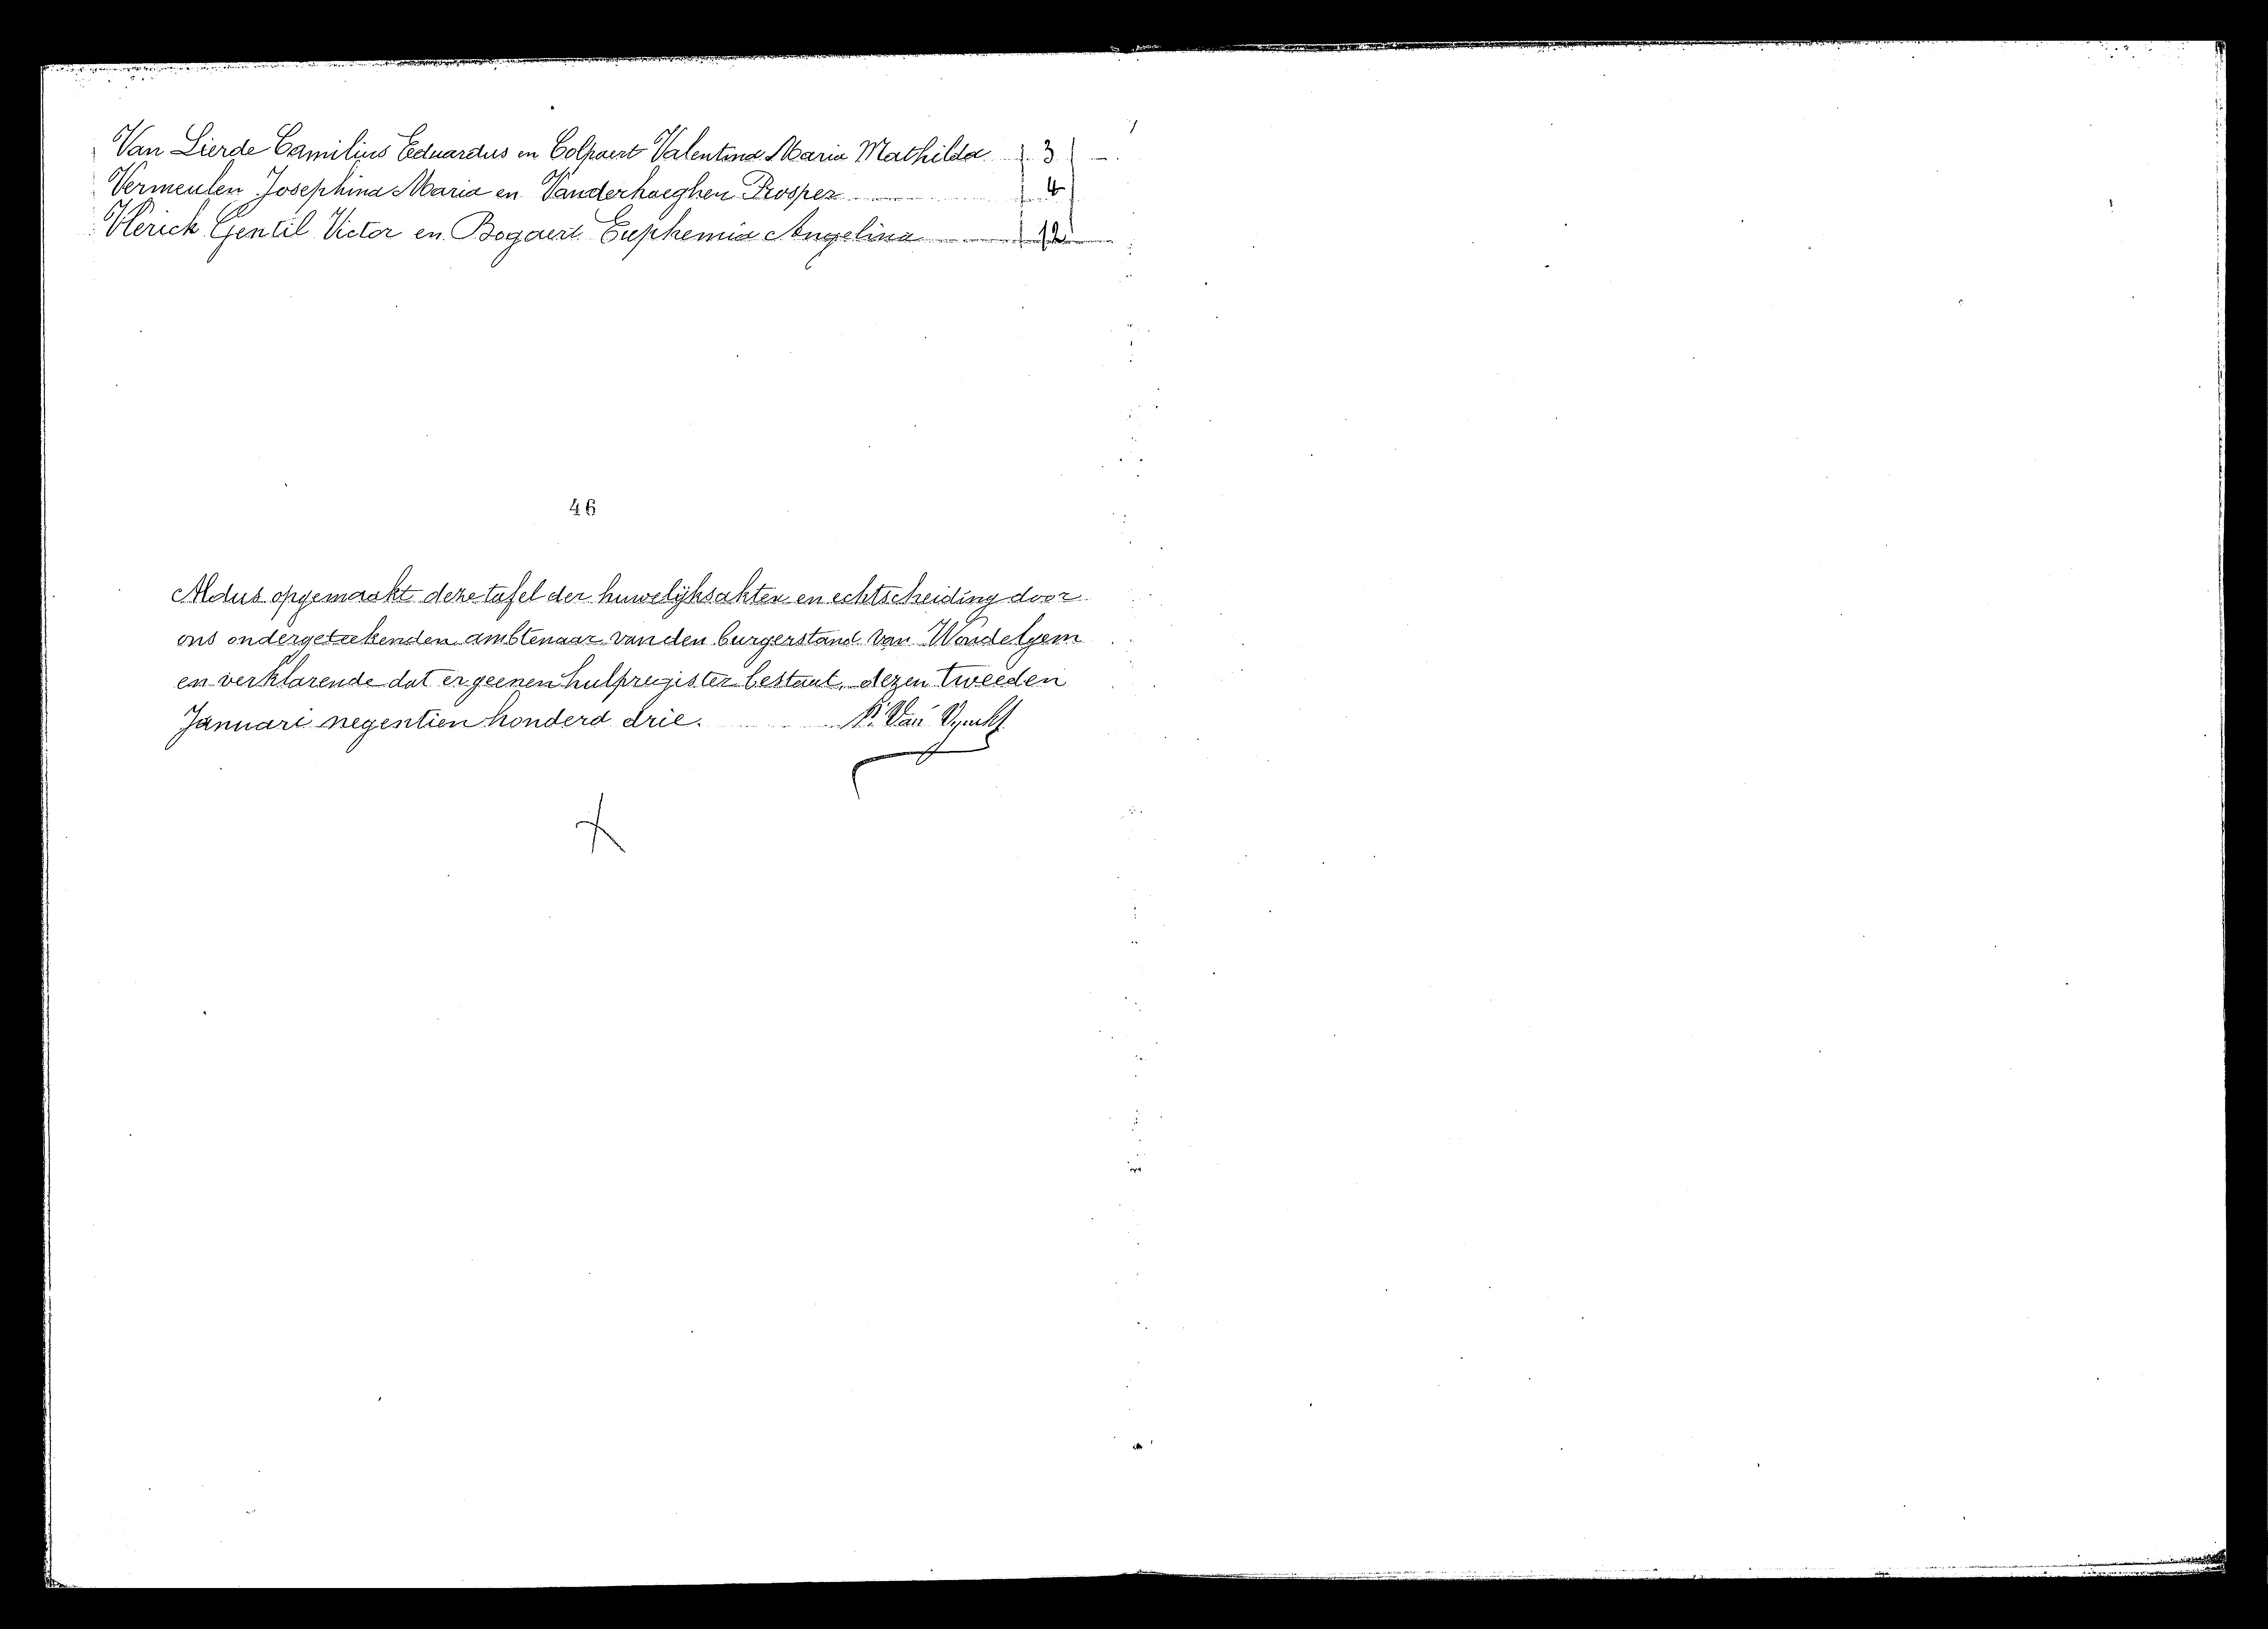 Van Lierde Camilius Eduardus en Colpaert Valentina Maria Mathilda 3
Vermeulen Josephina Maria en Vanderhaeghen Prosper 4
Vlerick Gentil Victor en Bogaert Euphemia Angelina 12
46
Aldus opgemaakt deze tafel der huwelijksakten en echtscheiding door
ons ondergeteekenden ambtenaar van den burgerstand van Wondelgem
en verklarende dat er geenen hulpregister bestaat, dezen tweeden
Januari negentien honderd drie. Van